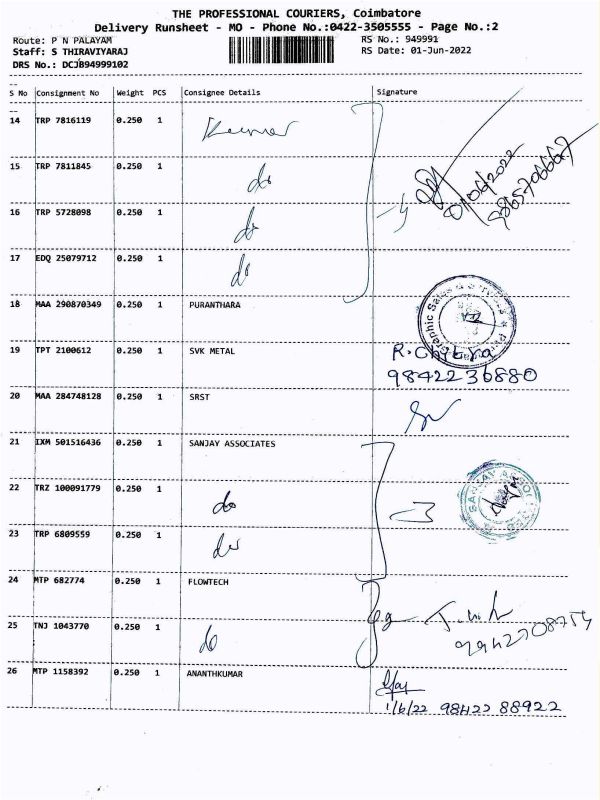 THE PROFESSIONAL COURIERS, Coimbatore
Delivery Runsheet - MO - Phone No.:0422-3505555 - Page No.:2
Route: P N PALAYAM RS No.: 949991
Staff: S THIRAVIYARAJ RS Date: 01-Jun-2022
DRS No.: DCJB94999102
S No Consignment No Weight PCS Consignee Details Signature
14 TRP 7816119 0.250 1 Kumar
15 TRP 7811845 0.250 1 do
01/06/2022
9865706667
16 TRP 5728098 0.250 1 do
4
17 EDQ 25079712 0.250 1 do
18 MAA 290870349 0.250 1 PURANTHARA
19 TPT 2100612 0.250 1 SVK METAL R. Chitra
9842236880
20 MAA 284748128 0.250 1 SRST
21 IXM 501516436 0.250 1 SANJAY ASSOCIATES
22 TRZ 100091779 0.250 1 do
3
23 TRP 6809559 0.250 1 do
24 MTP 682774 0.250 1 FLOWTECH
25 TNJ 1043770 0.250 1 do
9942708754
26 MTP 1158392 0.250 1 ANANTHKUMAR
1/6/22 98422 88922